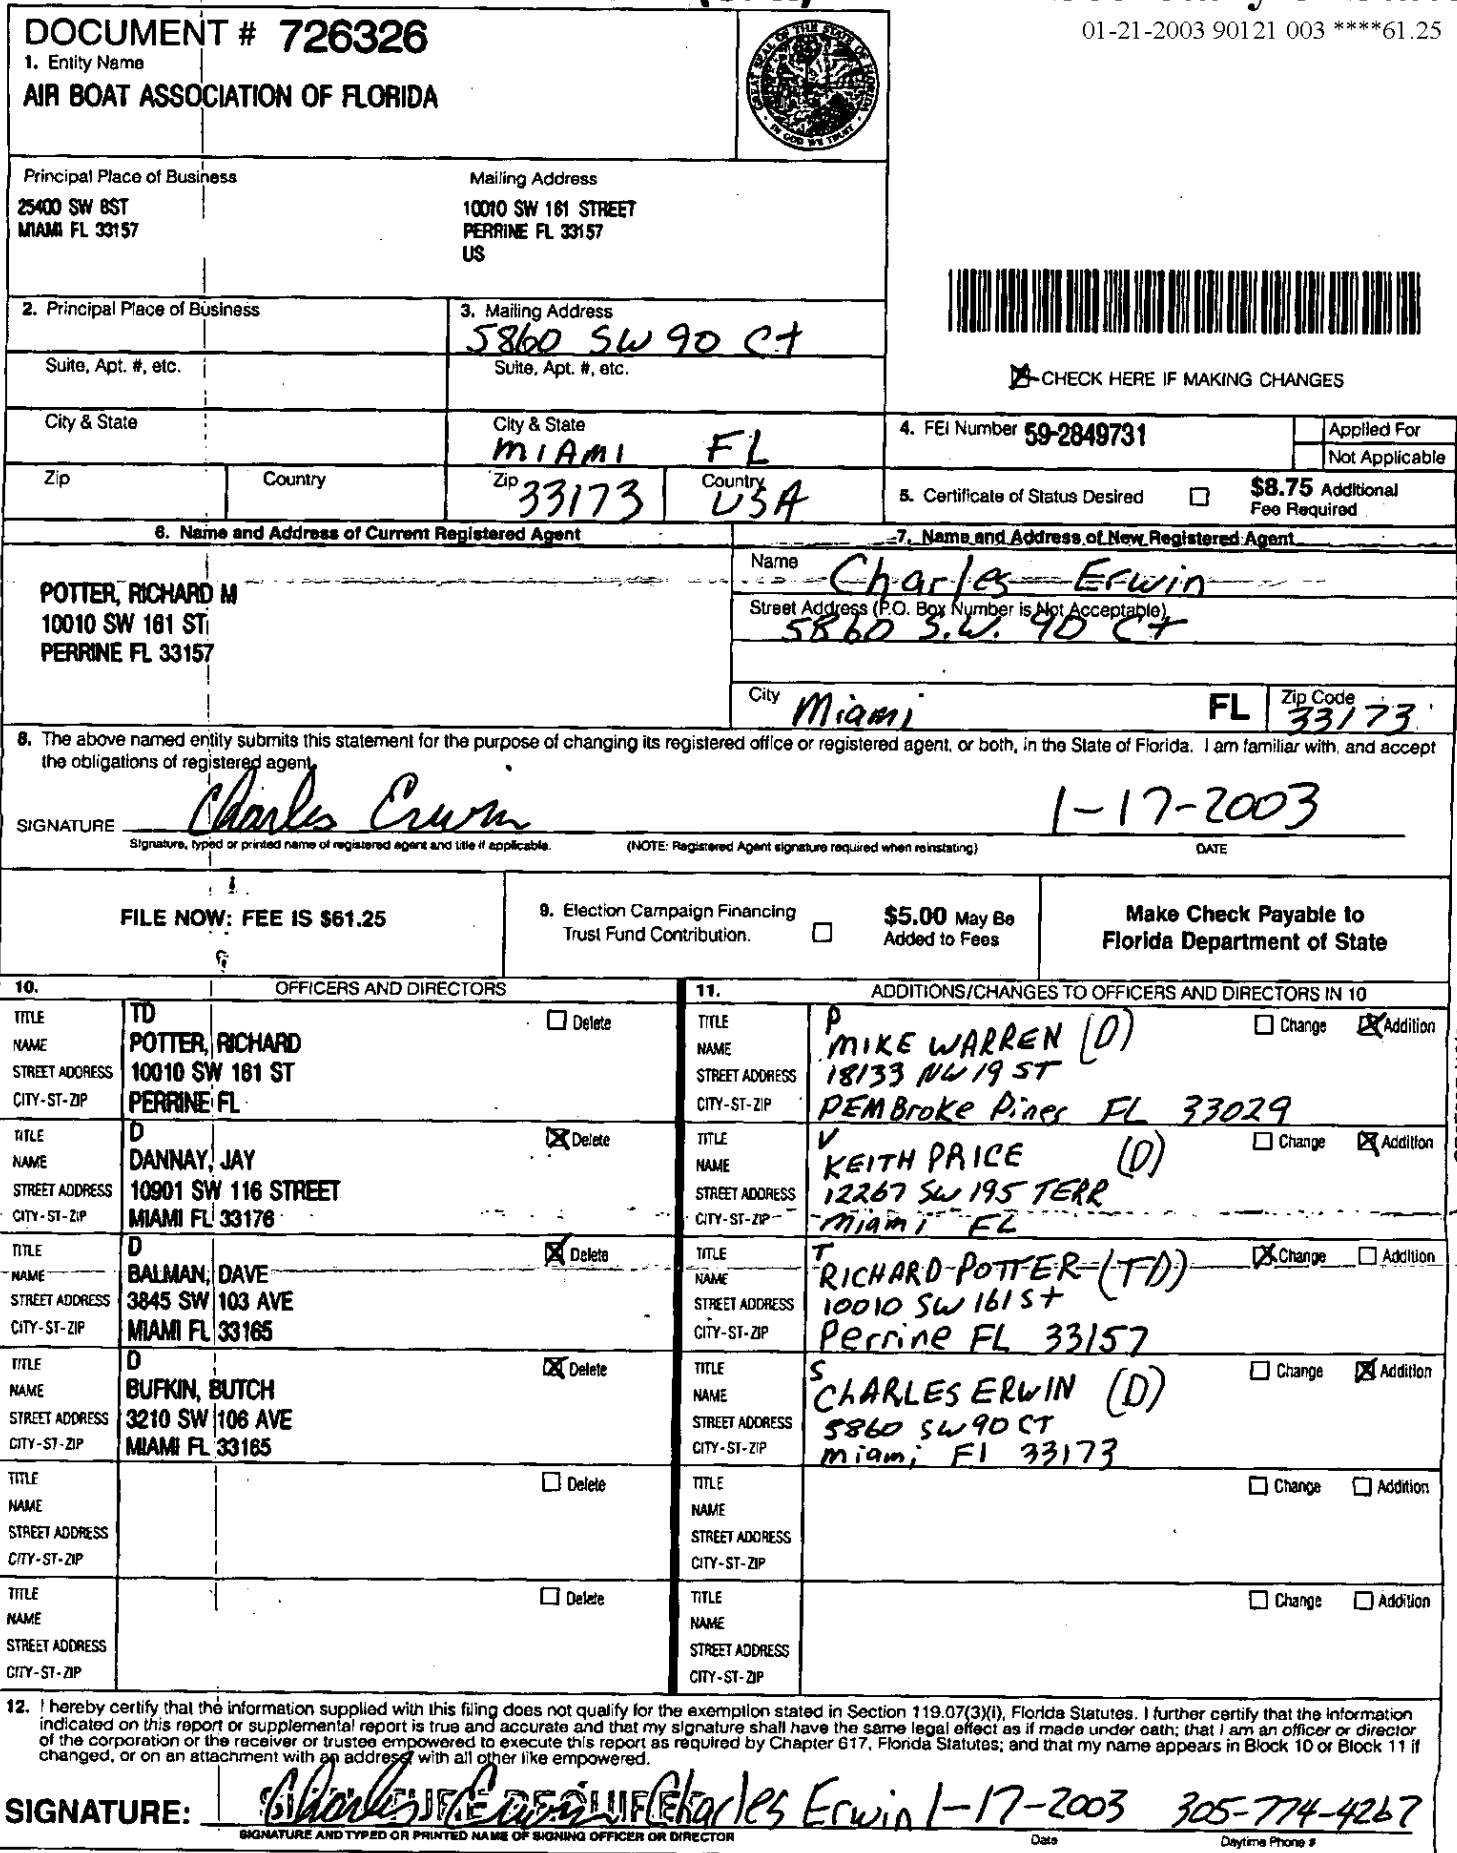 01-21-2003 90121 003 ****61.25
DOCUMENT # 726326
1. Entity Name
AIR BOAT ASSOCIATION OF FLORIDA
GREAT SEAL OF THE STATE OF FLORIDA
IN GOD WE TRUST
Principal Place of Business
25400 SW 8ST
MIAMI FL 33157
Mailing Address
10010 SW 161 STREET
PERRINE FL 33157
US
2. Principal Place of Business
3. Mailing Address
5860 SW 90 Ct
Suite, Apt. #, etc.
Suite, Apt. #, etc.
CHECK HERE IF MAKING CHANGES
City & State
City & State
MIAMI FL
Zip
Country
Zip 33173
Country USA
4. FEI Number 59-2849731
Applied For
Not Applicable
5. Certificate of Status Desired
$8.75 Additional
Fee Required
6. Name and Address of Current Registered Agent
POTTER, RICHARD M
10010 SW 161 ST
PERRINE FL 33157
7. Name and Address of New Registered Agent
Name Charles Erwin
Street Address (P.O. Box Number is Not Acceptable)
5860 S.W. 90 Ct
City Miami FL Zip Code 33173
8. The above named entity submits this statement for the purpose of changing its registered office or registered agent, or both, in the State of Florida. I am familiar with, and accept
the obligations of registered agent.
SIGNATURE Charles Erwin 1-17-2003
Signature, typed or printed name of registered agent and title if applicable. (NOTE: Registered Agent signature required when reinstating) DATE
FILE NOW: FEE IS $61.25
9. Election Campaign Financing
Trust Fund Contribution.
$5.00 May Be
Added to Fees
Make Check Payable to
Florida Department of State
10. OFFICERS AND DIRECTORS
TITLE TD Delete
NAME POTTER, RICHARD
STREET ADDRESS 10010 SW 161 ST
CITY-ST-ZIP PERRINE FL
TITLE D Delete
NAME DANNAY, JAY
STREET ADDRESS 10901 SW 116 STREET
CITY-ST-ZIP MIAMI FL 33176
TITLE D Delete
NAME BALMAN, DAVE
STREET ADDRESS 3845 SW 103 AVE
CITY-ST-ZIP MIAMI FL 33165
TITLE D Delete
NAME BUFKIN, BUTCH
STREET ADDRESS 3210 SW 106 AVE
CITY-ST-ZIP MIAMI FL 33165
TITLE Delete
NAME
STREET ADDRESS
CITY-ST-ZIP
TITLE Delete
NAME
STREET ADDRESS
CITY-ST-ZIP
11. ADDITIONS/CHANGES TO OFFICERS AND DIRECTORS IN 10
TITLE P Change Addition
NAME MIKE WARREN (D)
STREET ADDRESS 18133 NW 19 ST
CITY-ST-ZIP PEMBroke Pines FL 33029
TITLE V Change Addition
NAME KEITH PRICE (D)
STREET ADDRESS 12267 SW 195 TERR
CITY-ST-ZIP Miami FL
TITLE T Change Addition
NAME RICHARD POTTER (TD)
STREET ADDRESS 10010 SW 161 St
CITY-ST-ZIP Perrine FL 33157
TITLE S Change Addition
NAME CHARLES ERWIN (D)
STREET ADDRESS 5860 SW 90 CT
CITY-ST-ZIP miami Fl 33173
TITLE Change Addition
NAME
STREET ADDRESS
CITY-ST-ZIP
TITLE Change Addition
NAME
STREET ADDRESS
CITY-ST-ZIP
12. I hereby certify that the information supplied with this filing does not qualify for the exemption stated in Section 119.07(3)(i), Florida Statutes. I further certify that the information
indicated on this report or supplemental report is true and accurate and that my signature shall have the same legal effect as if made under oath; that I am an officer or director
of the corporation or the receiver or trustee empowered to execute this report as required by Chapter 617, Florida Statutes; and that my name appears in Block 10 or Block 11 if
changed, or on an attachment with an address, with all other like empowered.
SIGNATURE: SIGNATURE REQUIRED Charles Erwin Charles Erwin 1-17-2003 305-774-4267
SIGNATURE AND TYPED OR PRINTED NAME OF SIGNING OFFICER OR DIRECTOR Date Daytime Phone #